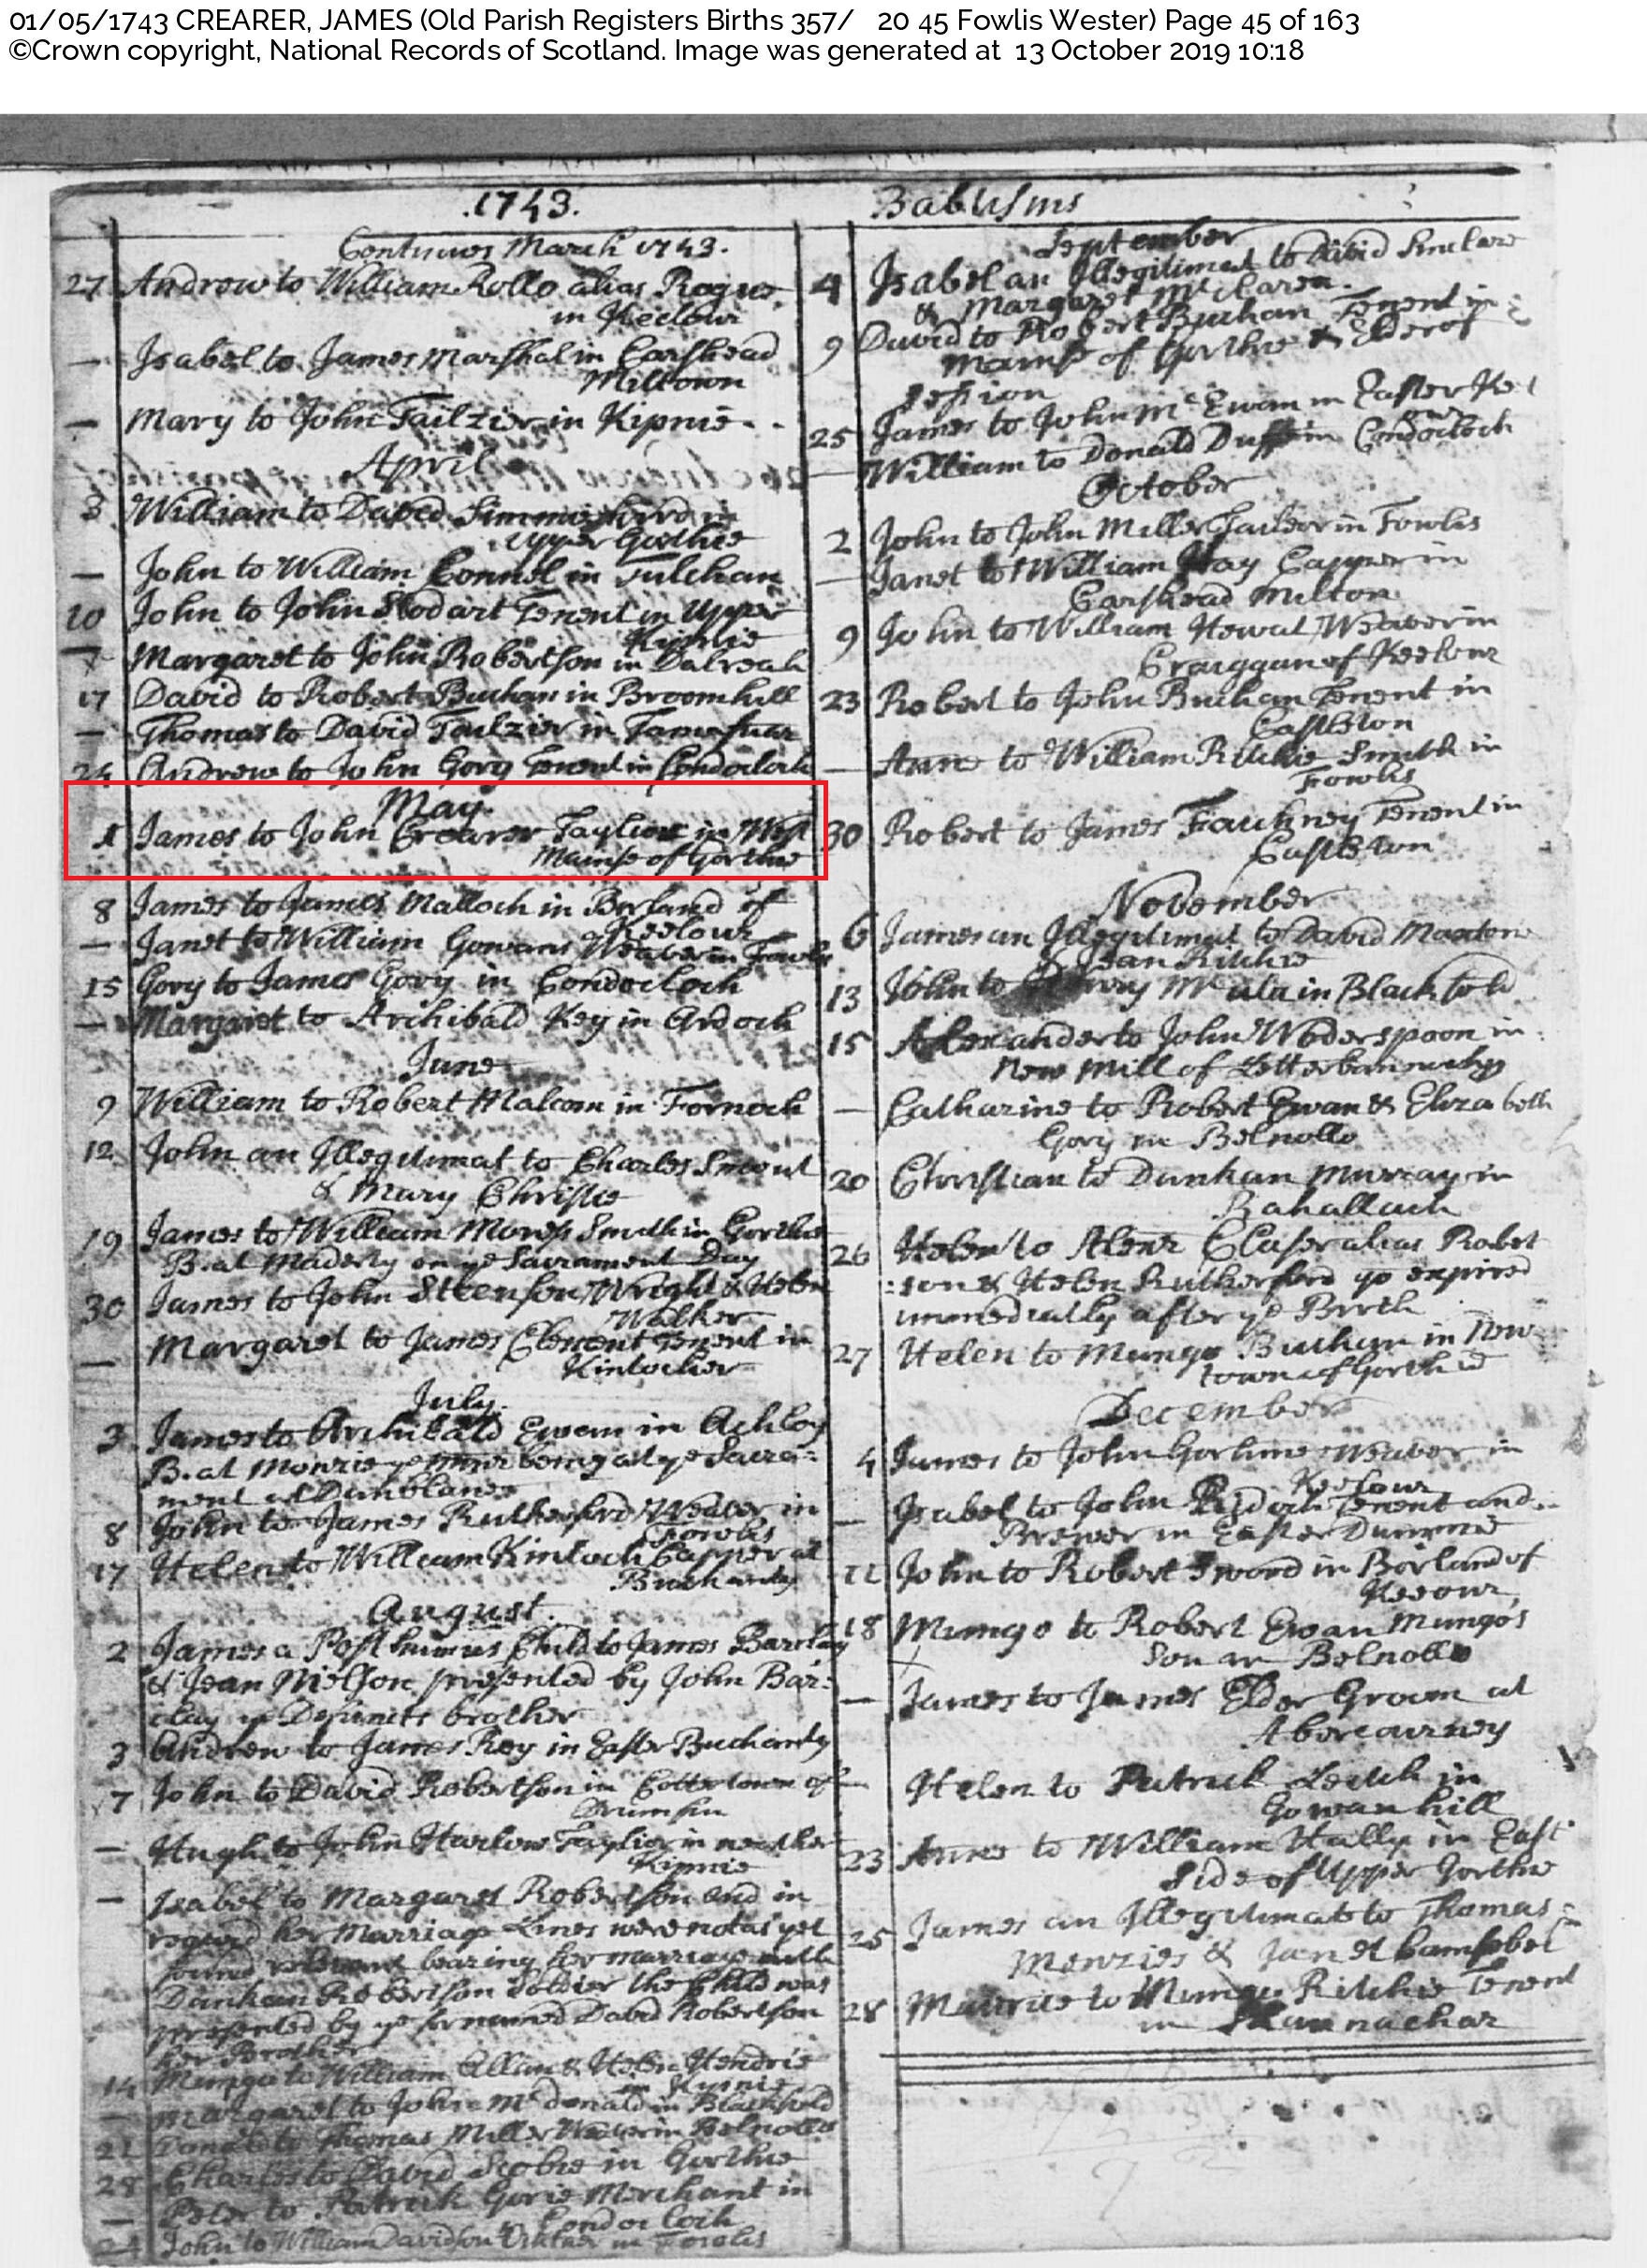 01/05/1743 CREARER, JAMES (Old Parish Registers Births 357/ 20 45 Fowlis Wester) Page 45 of 163
©Crown copyright, National Records of Scotland. Image was generated at 13 October 2019 10:18
.1743.
Continues March 1743.
27 Andrew to William Rollo alias Rogue
in Keelour
— Isabel to James Marshal in Carshead
Milltown
— Mary to John Tailzier in Kipnie
April
3 William to David
Upper Gorthie
— John to William Connel in Tulchan
10 John to John Stodart Tenent in Upper
Kipnie
— Margaret to John Robertson in Dalreah
17 David to Robert Buchan in Broomhill
— Thomas to David Tailzier in
24 Andrew to John Gory Tenent in Condocloch
May
1 James to John Crearer Taylior in West
Mainse of Gorthie
8 James to James Malloch in Borland of
Keelour
— Janet to William Gowans Weaver in Fowlis
15 Gory to James Gory in Condocloch
— Margaret to Archibald Key in Ardoch
June
9 William to Robert Malcom in Fornoch
12 John an Illegitimat to Charles Smout
& Mary Christie
19 James to William Smith in Gorthie
B. at Maderty on ye Sacrament Day
30 James to John Steenson Wright & Helen
Walker
— Margaret to James Clement Tenent in
Kintocher
July.
3 James to Archibald Ewan in Achloy
B. at Monzie ye being at ye Sacra=
ment at Dunblane
8 John to James Rutherford Weaver in
Fowlis
17 Helen to William Kinloch Capper at
Buchandy
August.
2 James a Posthumus Child to James Barclay
& Jean presented by John Bar=
clay ye Defuncts brother
3 Andrew to James Roy in Easter Buchandy
7 John to David Robertson in Cottertown of
— Hugh to John Harlow Taylior in neather
Kipnie
— Isabel to Margaret Robertson and in
regard her Marriage Lines were not as yet
found bearing her marriage with
Dunkan Robertson Soldier the Child was
presented by ye fornamed David Robertson
her Brother
14 Mungo to William Allan & Helen Hendrie
in
— Margaret to John Mcdonald in Blackfold
21 Donald to Thomas Miller Weaver in Belnollo
28 Charles to David Scobie in Gorthie
— Peter to Patrick Gorie Merchant in
Condocloch
24 John to William Davidson in Fowlis
Babtisms
September
4 Isabel an Illegitimat to David Sinclare
& Margaret McClaren.
9 David to Robert Buchan Tenent in
Mainse of Gorthie & Elder of
Session
25 James to John McEwan in Easter
— William to Donald Duff in Condocloch
October
2 John to John Miller Tailior in Fowlis
— Janet to William Hay Capper in
Carshead Milton
9 John to William Hewat Weaver in
Craiggan of Keelour
23 Robert to John Buchan Tenent in
Castleton
— Anne to William Ritchie Smith in
Fowlis
30 Robert to James Faichney Tenent in
Castleton
November
6 James an Illegitimat to David Maxton
& Jean Ritchie
13 John to in Blackfold
15 Alexander to John Woderspoon in
New Mill of
— Catharine to Robert Ewan & Elizabeth
Gory in Belnollo
20 Christian to Dunkan Murray in
26 Helen to Alexr alias Robert
=son & Helen Rutherford yo expired
immediatly after ye Birth
27 Helen to Mungo Buchan in New
town of Gorthie
December
4 James to John Weaver in
Keelour
— Isabel to John Tenent and
Brewer in Easter
11 John to Robert Sword in Borland of
Keeour
18 Mungo to Robert Ewan Mungos
Son in Belnollo
— James to James Elder Groom at
Abercairney
— Helen to Patrick Leitch in
Gowanhill
23 Anne to William Hally in East
Side of Upper Gorthie
25 James an Illegitimat to Thomas
Menzies & Janet Campbel
28 Maurice to Mungo Ritchie Tenent
in